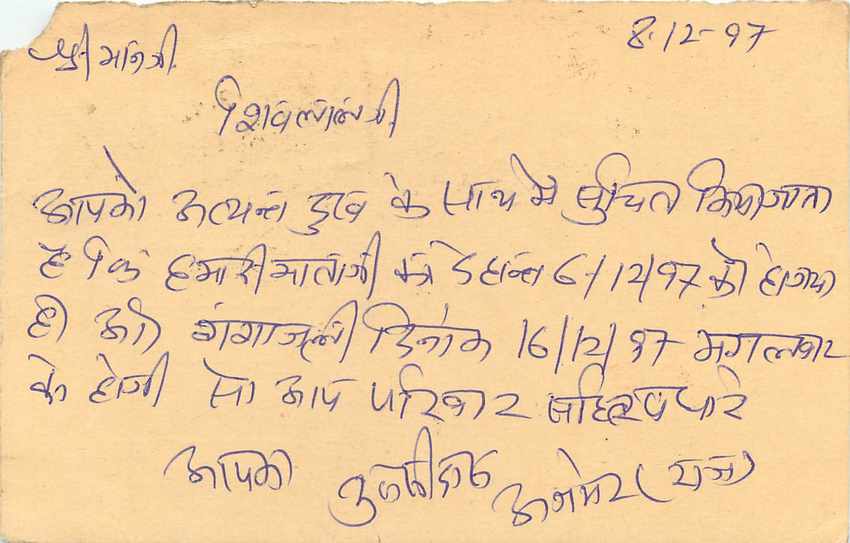 8-12-97
श्रीमानजी
शिवलालजी
आपको अत्यन्त दुख के साथ मे सुचित किया जाता
है कि हमारी माताजी का देहान्त 6/12/97 को हो गया
है और गंगाजली दिनांक 16/12/97 मंगलवार
के होगी सो आप परिवार सहित पधारे
आपका अजमेर (राज)